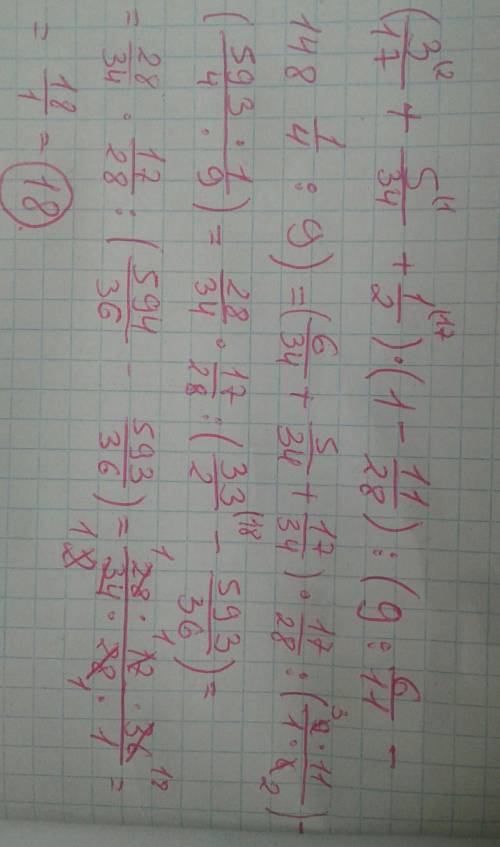 (3/17 ⁽² + 5/34 ⁽¹ + 1/2 ⁽¹⁷) · (1 - 11/28) : (9 : 6/11 -
148 1/4 : 9) = (6/34 + 5/34 + 17/34) · 17/28 : (9³ · 11 / 1 · 6₂) -
(593 · 1 / 4 · 9) = 28/34 · 17/28 : (33/2 ⁽¹⁸ - 593/36) =
= 28/34 · 17/28 : (594/36 - 593/36) = 28 · 17 · 36 / 34 · 28 · 1 =
= 18/1 = 18